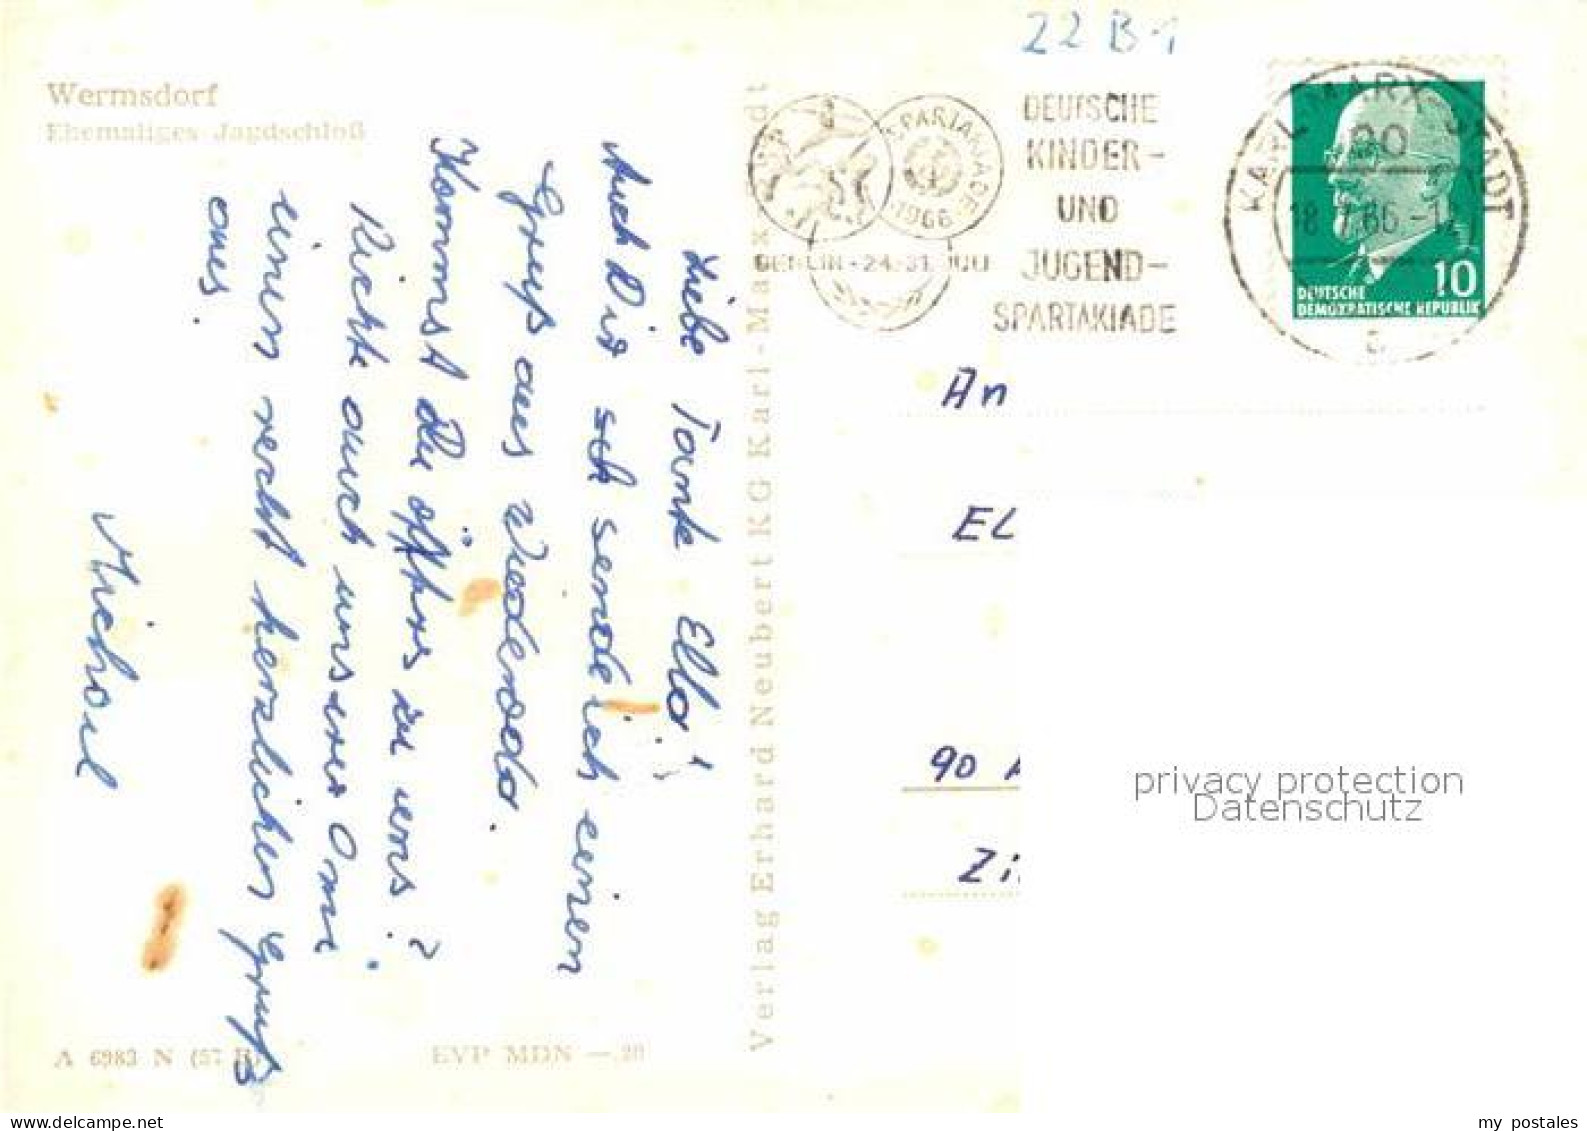 22 B-1
Wermsdorf
Ehemaliges Jagdschloß
Liebe Tante Ella!
Auch Dir sch sende ich einen
Gruß aus Wiederoda.
Kommst Du öfters zu uns?
Richte auch unserer Omi
einen recht herzlichen Gruß
aus.
Michael
A 6983 N (57 B)
EVP MDN — 20
Verlag Erhard Neubert KG Karl-Marx-Stadt
SPARTAKIADE
1966
BERLIN · 24.-31. JULI
DEUTSCHE
KINDER-
UND
JUGEND-
SPARTAKIADE
KARL-MARX-STADT
90
10
DEUTSCHE
DEMOKRATISCHE REPUBLIK
An
EL
90
Zi
privacy protection
Datenschutz
my postales